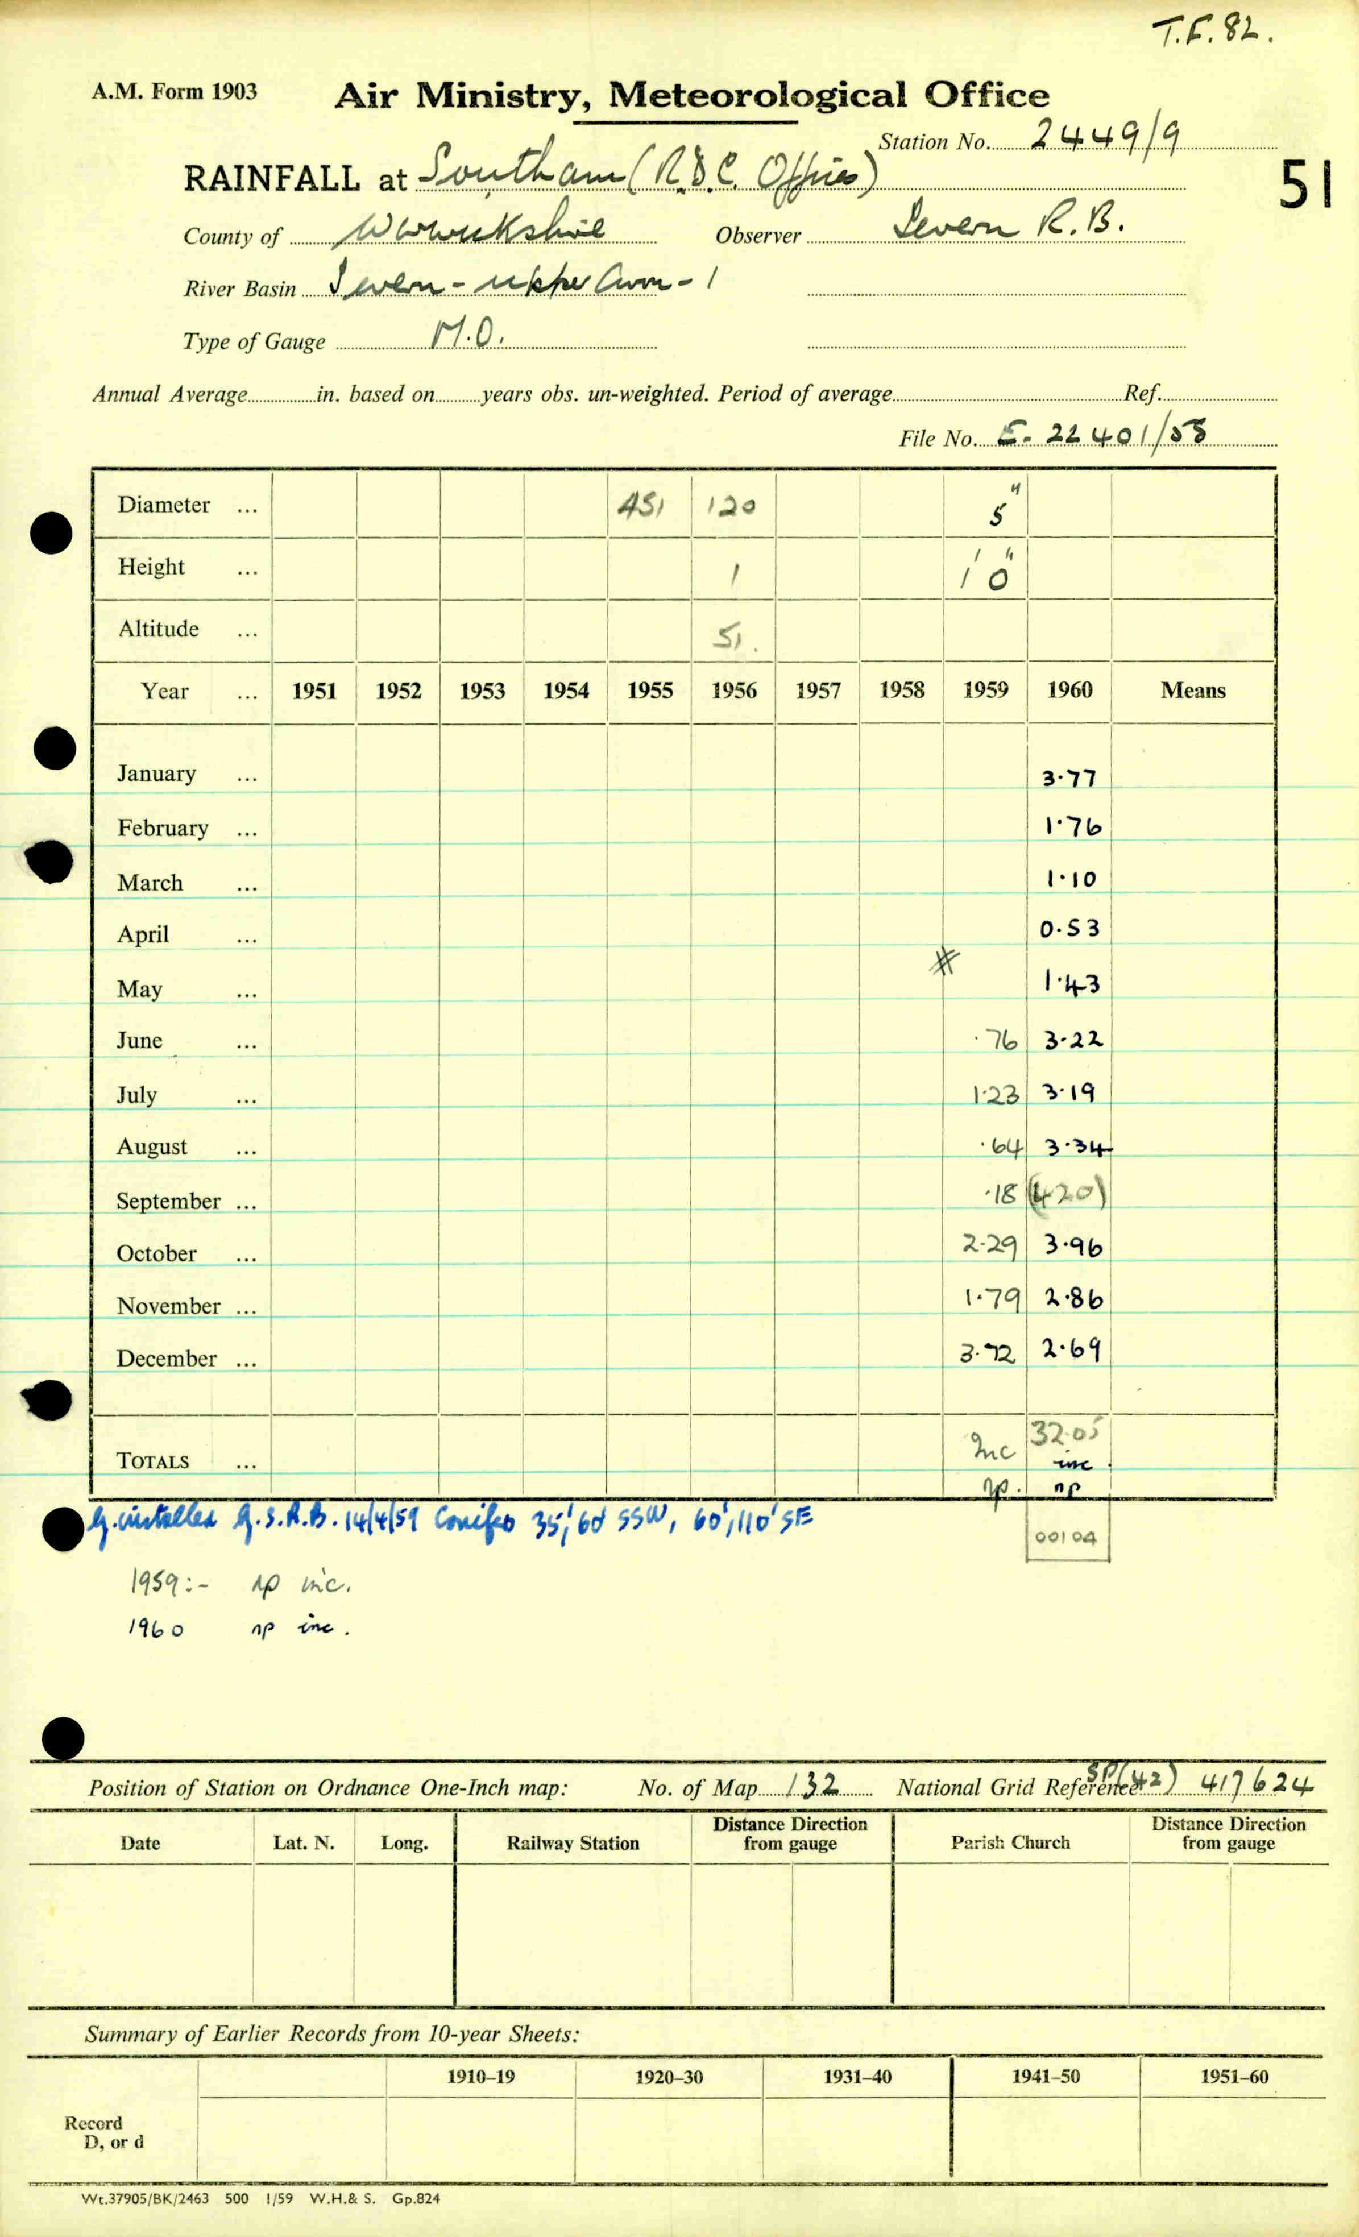 T.F. 82.
A.M. Form 1903
Air Ministry, Meteorological Office
Station No. 2449/9
RAINFALL at Southam (R.D.C. Offices)
51
County of Warwickshire Observer Severn R.B.
River Basin Severn - upper Avon - 1
Type of Gauge M.O.
Annual Average in. based on years obs. un-weighted. Period of average Ref.
File No. E. 22401/58
Diameter ... 451 120 5"
Height ... 1 1' 0"
Altitude ... 51.
Year ... 1951 1952 1953 1954 1955 1956 1957 1958 1959 1960 Means
January ... 3.77
February ... 1.76
March ... 1.10
April ... 0.53
May ... 1.43
June ... .76 3.22
July ... 1.23 3.19
August ... .64 3.34
September ... .18 (4.20)
October ... 2.29 3.96
November ... 1.79 2.86
December ... 3.72 2.69
TOTALS ... Inc 32.05
inc.
np. np
G. installed G.S.R.B. 14/4/59 Conifer 35', 60' SSW, 60', 110' SE
00104
1959:- np inc.
1960 np inc.
Position of Station on Ordnance One-Inch map: No. of Map 132 National Grid Reference SP(42) 417624
Date Lat. N. Long. Railway Station Distance Direction from gauge Parish Church Distance Direction from gauge
Summary of Earlier Records from 10-year Sheets:
1910–19 1920–30 1931–40 1941–50 1951–60
Record
D, or d
Wt.37905/BK/2463 500 1/59 W.H.& S. Gp.824